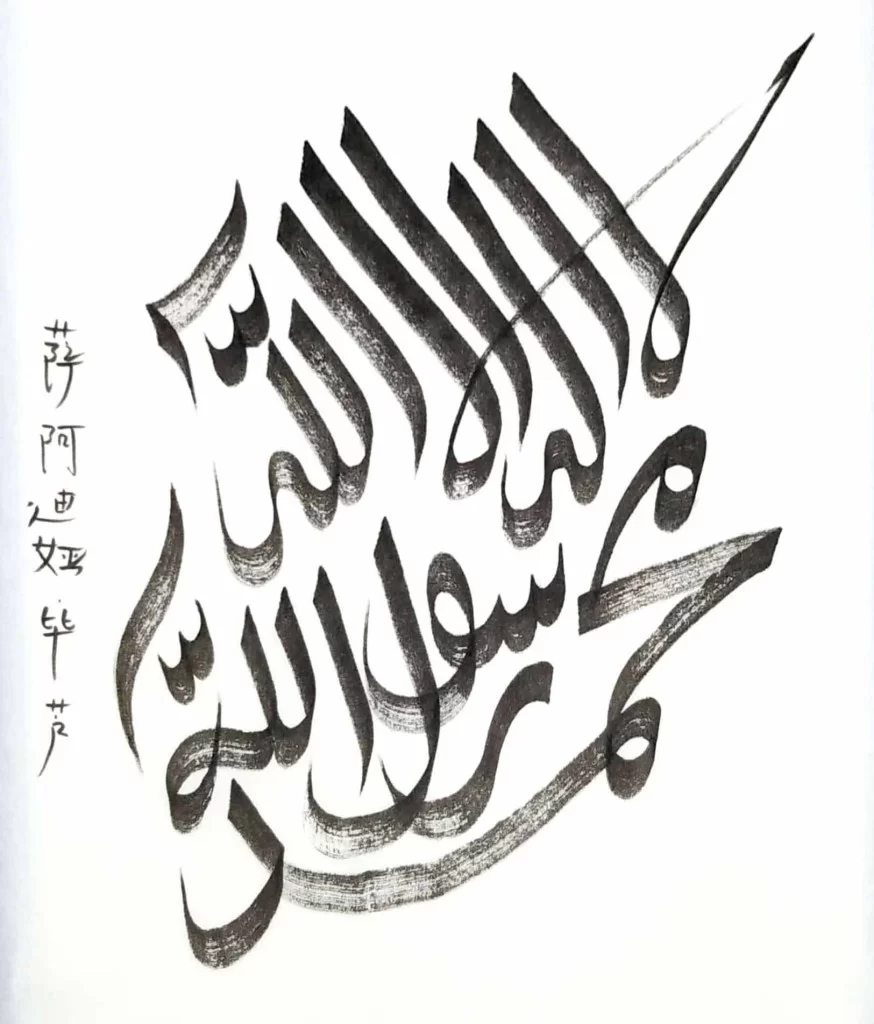 لا اله الا الله
محمد رسول الله
萨阿迪娅毕芦